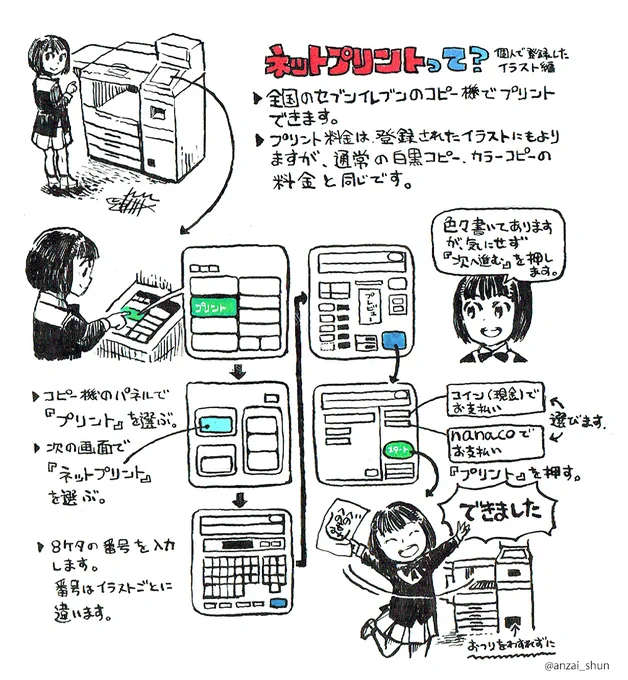 ネットプリントって?
個人で登録した
イラスト編
▶全国のセブンイレブンのコピー機でプリント
できます。
▶プリント料金は、登録されたイラストにもより
ますが、通常の白黒コピー、カラーコピーの
料金と同じです。
プリント
プレビュー
色々書いてあります
が気にせず
『次へ進む』を押し
ます。
▶コピー機のパネルで
『プリント』を選ぶ。
▶次の画面で
『ネットプリント』
を選ぶ。
▶8ケタの番号を入力
します。
番号はイラストごとに
違います。
スタート
コイン(現金)で
お支払い
nanacoで
お支払い
選びます。
『プリント』を押す。
できました
へのへの
もへじ
おつりをわすれずに
@anzai_shun